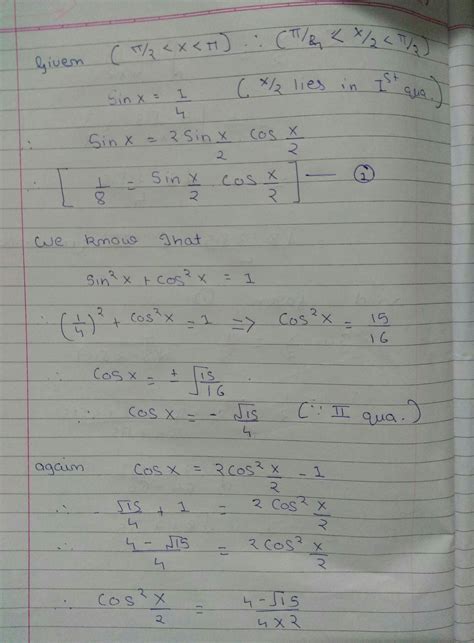 Given (π/2 < x < π) ∴ (π/4 < x/2 < π/2)
Sin x = 1/4 (x/2 lies in Ist qua.)
∴ Sin x = 2 Sin x/2 cos x/2
∴ [1/8 = Sin x/2 cos x/2] — ①
We know that
sin²x + cos²x = 1
∴ (1/4)² + cos²x = 1 => cos²x = 15/16
∴ cos x = ± √15/16
∴ cos x = - √15/4 (∵ II qua.)
again cos x = 2cos² x/2 - 1
∴ - √15/4 + 1 = 2 cos² x/2
∴ 4 - √15/4 = 2cos² x/2
∴ cos² x/2 = 4 - √15/4 x 2